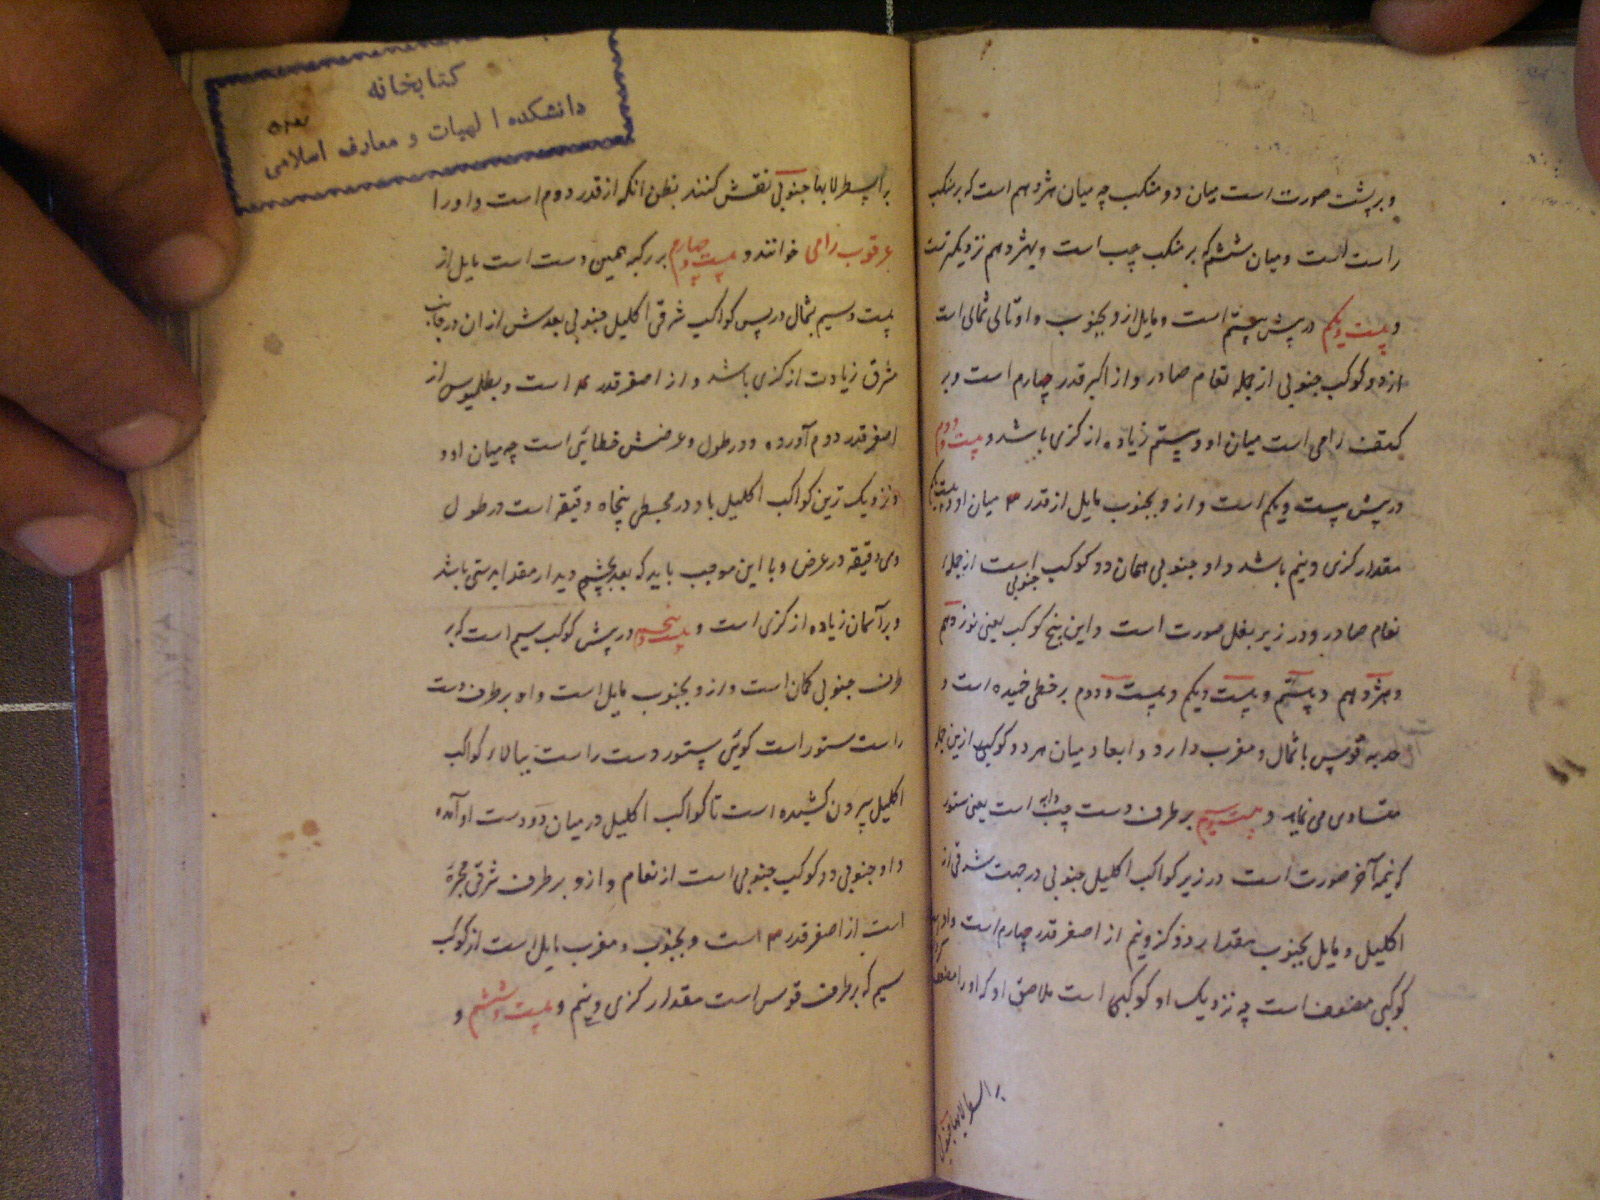 و بر پشت صورت است میان دو منکب چه میان هژدهم است که بر منکب
راست است و میان ششم که بر منکب چپ است و بهژدهم نزدیکترست
و بیست و یکم در پیش بیستم است و مایل ازو بجنوب و او تالی شمالی است
از دو کوکب جنوبی از جمله نعام صادر و از اکبر قدر چهارم است و بر
کتف رامی است میان او و بیستم زیاده از کزی باشد و بیست و دوم
در پیش بیست و یکم است و ازو بجنوب مایل از قدر ۴ میان او و بیست و یکم
مقدار کزی و نیم باشد و او جنوبی همان دو کوکب جنوبی است از جمله
نعام صادر و در زیر بغل صورت است و این پنج کوکب یعنی نوزدهم
و هژدهم و بیستم و بیست و یکم و بیست و دوم بر خطی خمیده است و
حدبه قوس با شمال و مغرب دارد و ابعاد میان هر دو کوکبی ازین جمله
متساوی می نماید و بیست و سیم بر طرف دست چپ دابه است یعنی ستور
که نیمه آخر صورت است در زیر کواکب اکلیل جنوبی در جهت شرقی از
اکلیل و مایل بجنوب بمقدار دو کز و نیم از اصغر قدر چهارم است و او
کوکبی مضعف است چه نزدیک او کوکبی است ملاصق او که او را مضعف
بر اسطرلابها جنوبی
کتابخانه
دانشکده الهیات و معارف اسلامی
بر اسطرلابها جنوبی نقش کنند بظن انکه از قدر دوم است و او را
عرقوب رامی خوانند و بیست و چهارم بر رکبه همین دست است مایل از
بیست و سیم بشمال در پس کواکب شرقی اکلیل جنوبی بعدش از ان در جانب
مشرق زیادت از کزی باشد و از اصغر قدر ۴ است و بطلمیوس از
اصغر قدر دوم آورده و در طول و عرضش خطائی است چه میان او و
نزدیک ترین کواکب اکلیل باو در مجسطی پنجاه دقیقه است در طول
و سی دقیقه در عرض و با این موجب باید که بعد بچشم دیدار مقدار بدستی باشد
و بر آسمان زیاده از کزی است و بیست و پنجم در پیش کوکب سیم است که بر
طرف جنوبی کمان است و ازو بجنوب مایل است و او بر طرف دست
راست ستور است کوئی ستور دست راست ببالا بر کواکب
اکلیل بیرون کشیده است تا کواکب اکلیل در میان دو دست او آمده
و او جنوبی دو کوکب جنوبی است از نعام وارد بر طرف شرقی مجره
است از اصغر قدر ۴ است و بجنوب و مغرب مایل است از کوکب
سیم که بر طرف قوس است مقدار کزی و نیم و بیست و ششم و